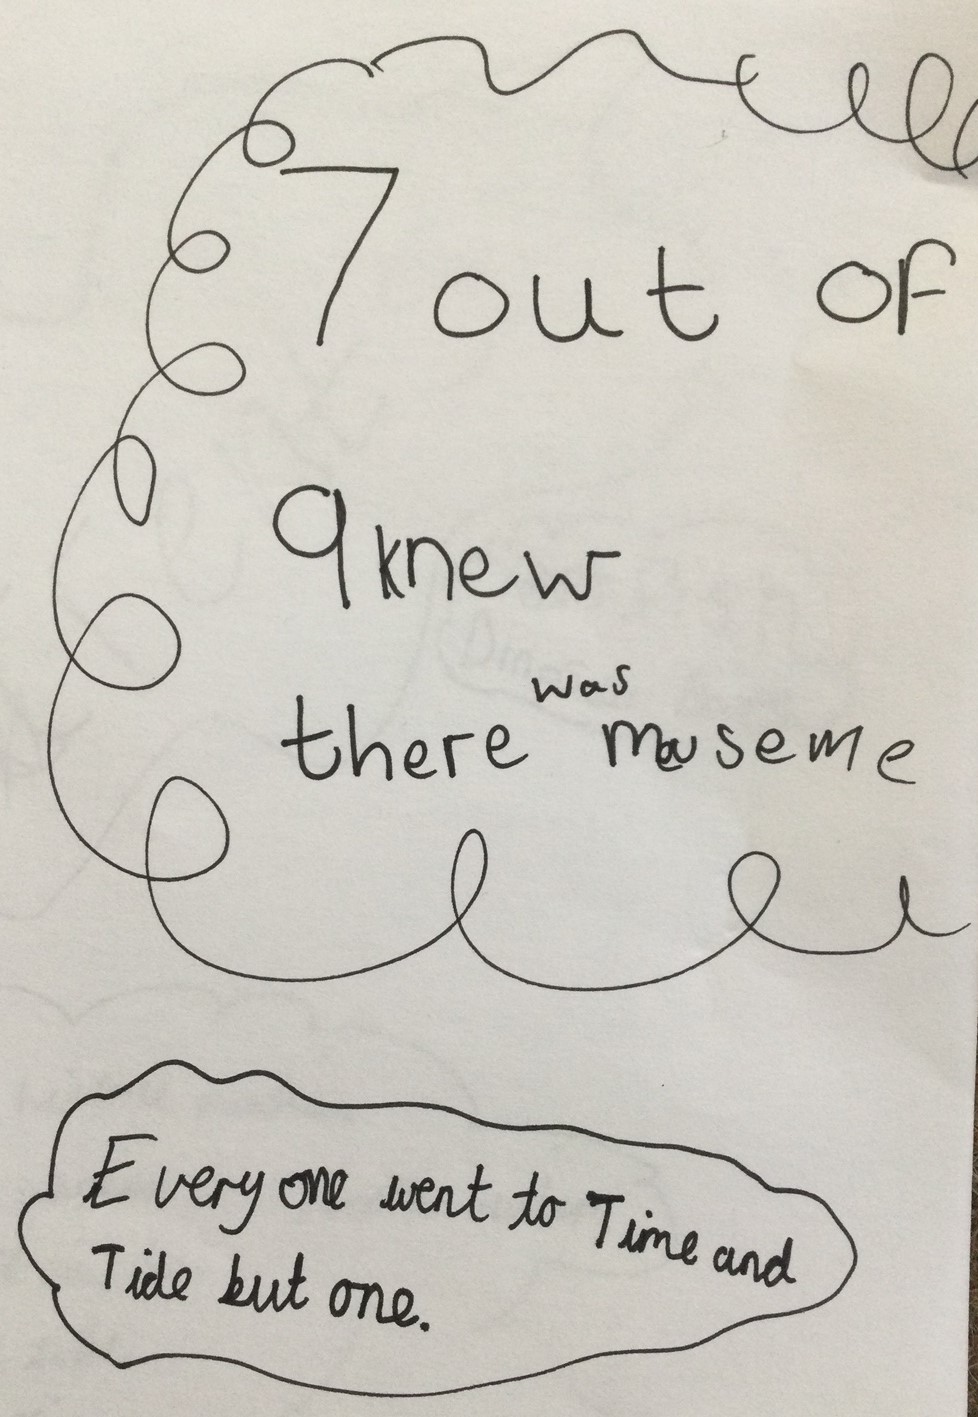 7 out of
9 knew
there was museme
Everyone went to Time and
Tide but one.